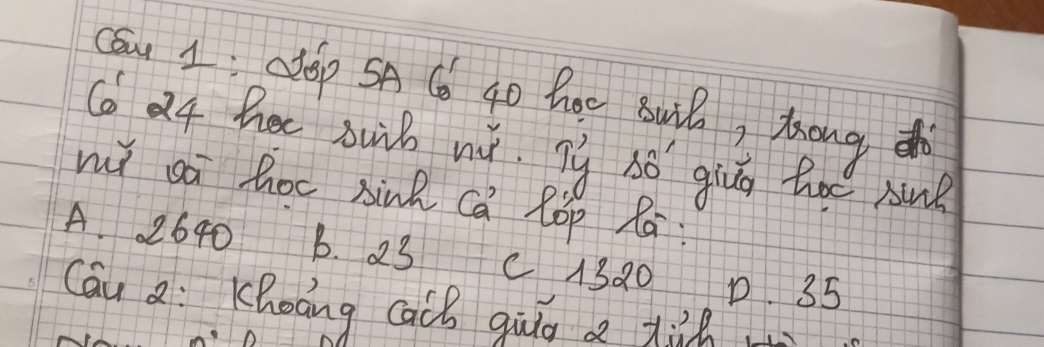 Câu 1: Lớp 5A Có 40 học sinh, trong đó
Có 24 học sinh nữ. Tỷ số giữa học sinh
nữ và học sinh cả lớp là:
A. 2640 B. 23 C 1320 D. 35
Câu 2: Khoảng cách giữa 2 tỉnh